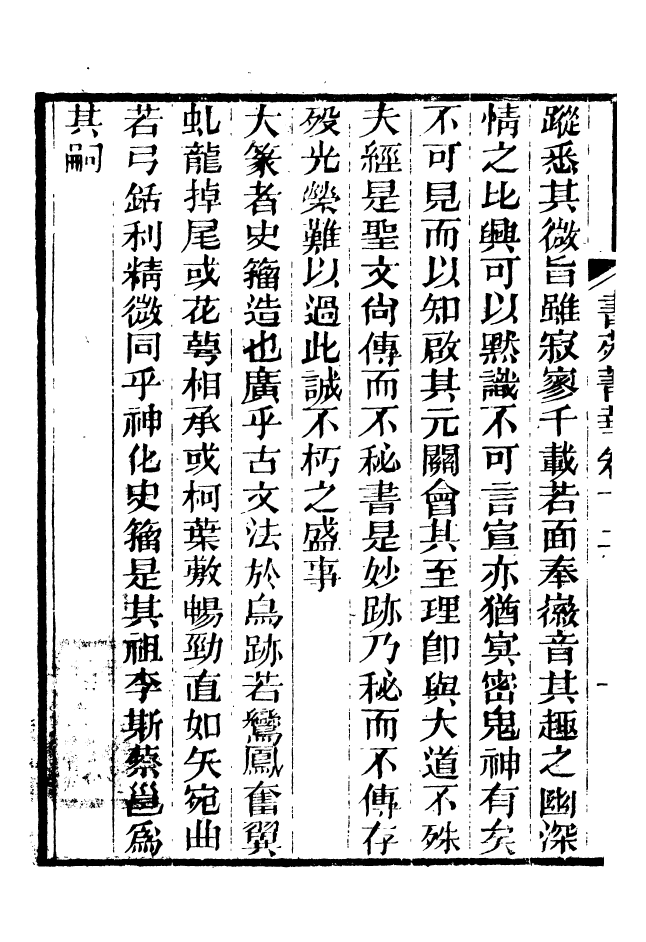 書苑菁華卷十二
蹤悉其微旨雖寂寥千載若面奉徽音其趣之幽深
情之比興可以默識不可言宣亦猶冥密鬼神有矣
不可見而以知啟其元關會其至理卽與大道不殊
夫經是聖文尙傳而不秘書是妙跡乃秘而不傳存
歿光榮難以過此誠不朽之盛事
大篆者史籀造也廣乎古文法於鳥跡若鸞鳳奮翼
虬龍掉尾或花萼相承或柯葉敷暢勁直如矢宛曲
若弓銛利精微同乎神化史籀是其祖李斯蔡邕爲
其嗣